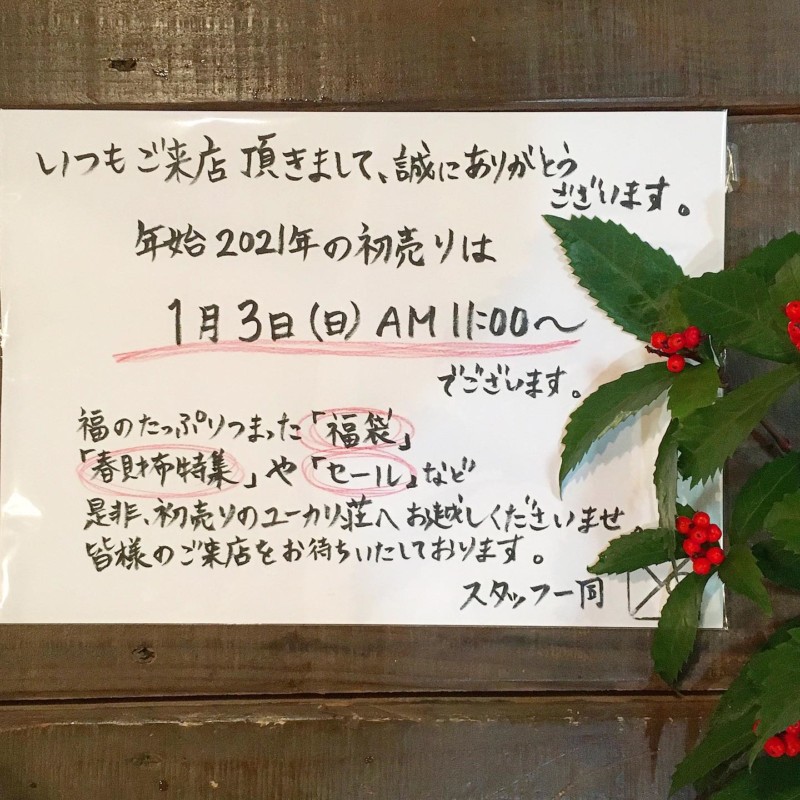 いつもご来店頂きまして、誠にありがとう
ございます。
年始2021年の初売りは
1月3日(日)AM11:00〜
でございます。
福のたっぷりつまった「福袋」
「春財布特集」や「セール」など
是非、初売りのユーカリ荘へお越しくださいませ
皆様のご来店をお待ちいたしております。
スタッフ一同